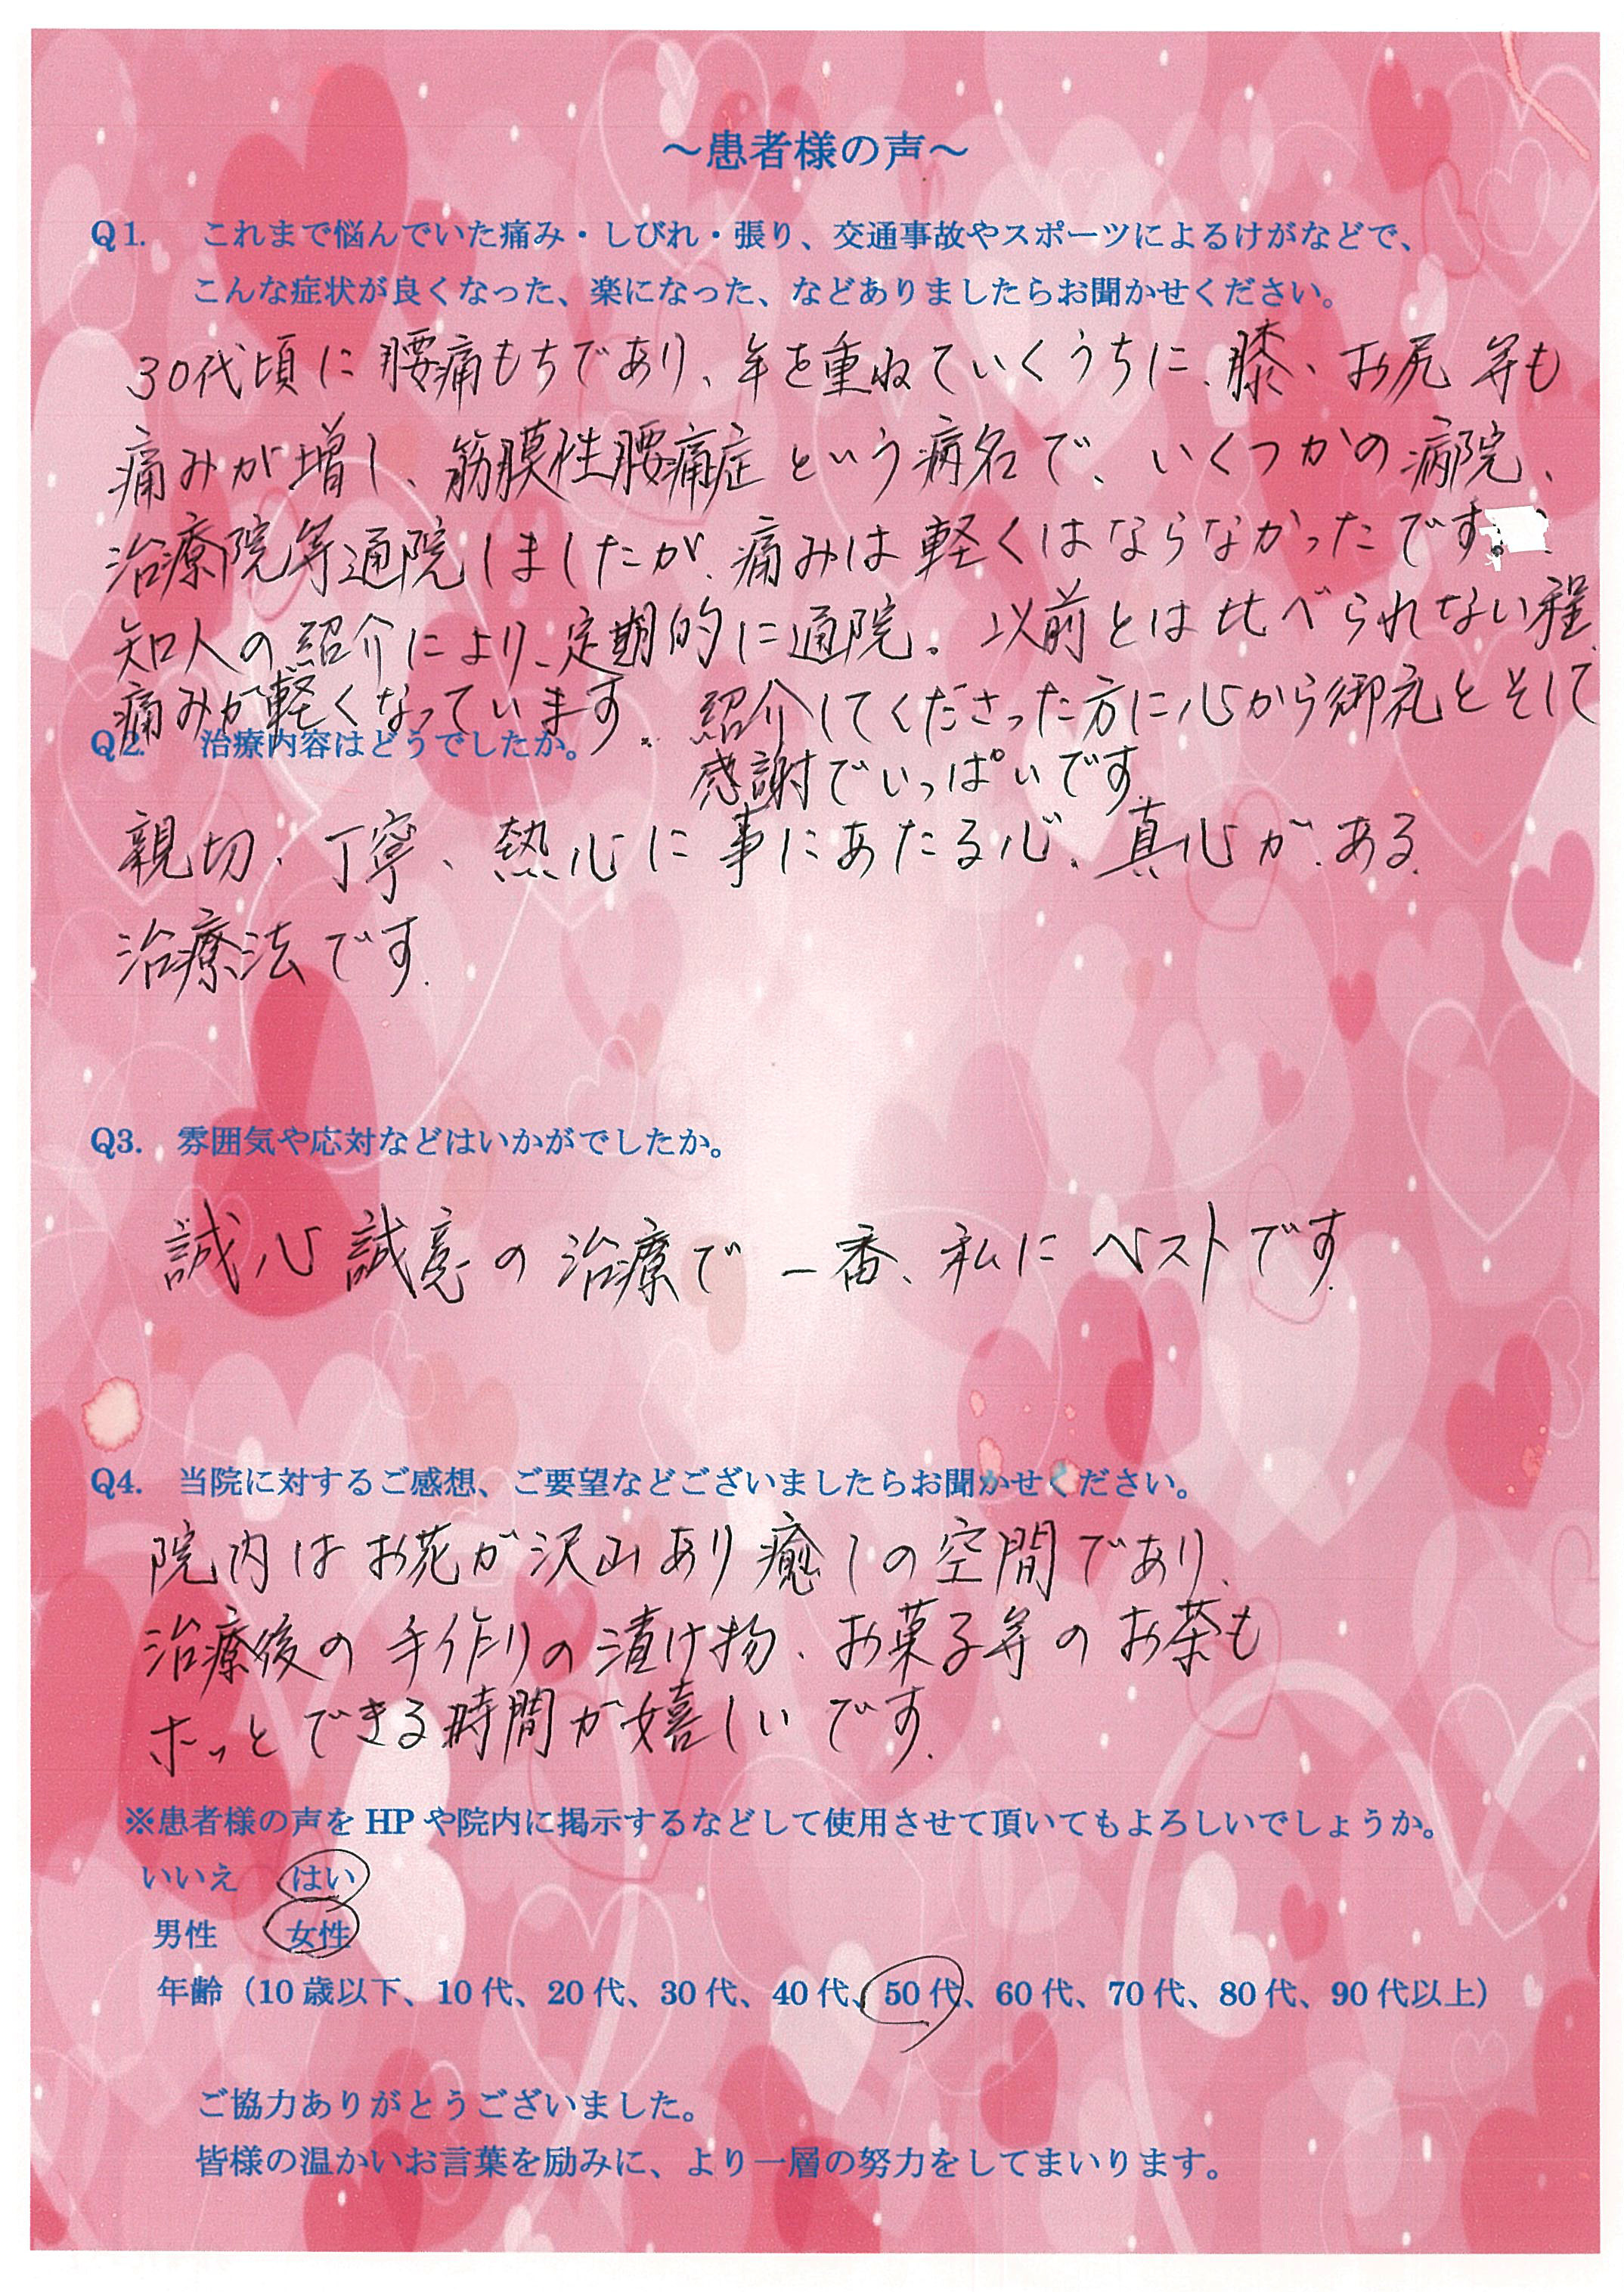 ～患者様の声～
Q1. これまで悩んでいた痛み・しびれ・張り、交通事故やスポーツによるけがなどで、
こんな症状が良くなった、楽になった、などありましたらお聞かせください。
30代頃に腰痛もちであり、年を重ねていくうちに、膝、お尻等も
痛みが増し、筋膜性腰痛症という病名で、いくつかの病院、
治療院等通院しましたが、痛みは軽くはならなかったです。
知人の紹介により、定期的に通院。以前とは比べられない程、
痛みが軽くなっています。紹介してくださった方に心から御礼とそして
感謝でいっぱいです
Q2. 治療内容はどうでしたか。
親切、丁寧、熱心に事にあたる心、真心が、ある
治療法です.
Q3. 雰囲気や応対などはいかがでしたか。
誠心誠意の治療で一番、私にベストです.
Q4. 当院に対するご感想、ご要望などございましたらお聞かせください。
院内はお花が沢山あり癒しの空間であり、
治療後の手作りの漬け物、お菓子等のお茶も
ホッとできる時間が嬉しいです.
※患者様の声をHPや院内に掲示するなどして使用させて頂いてもよろしいでしょうか。
いいえ はい
男性 女性
年齢（10歳以下、10代、20代、30代、40代、50代、60代、70代、80代、90代以上）
ご協力ありがとうございました。
皆様の温かいお言葉を励みに、より一層の努力をしてまいります。